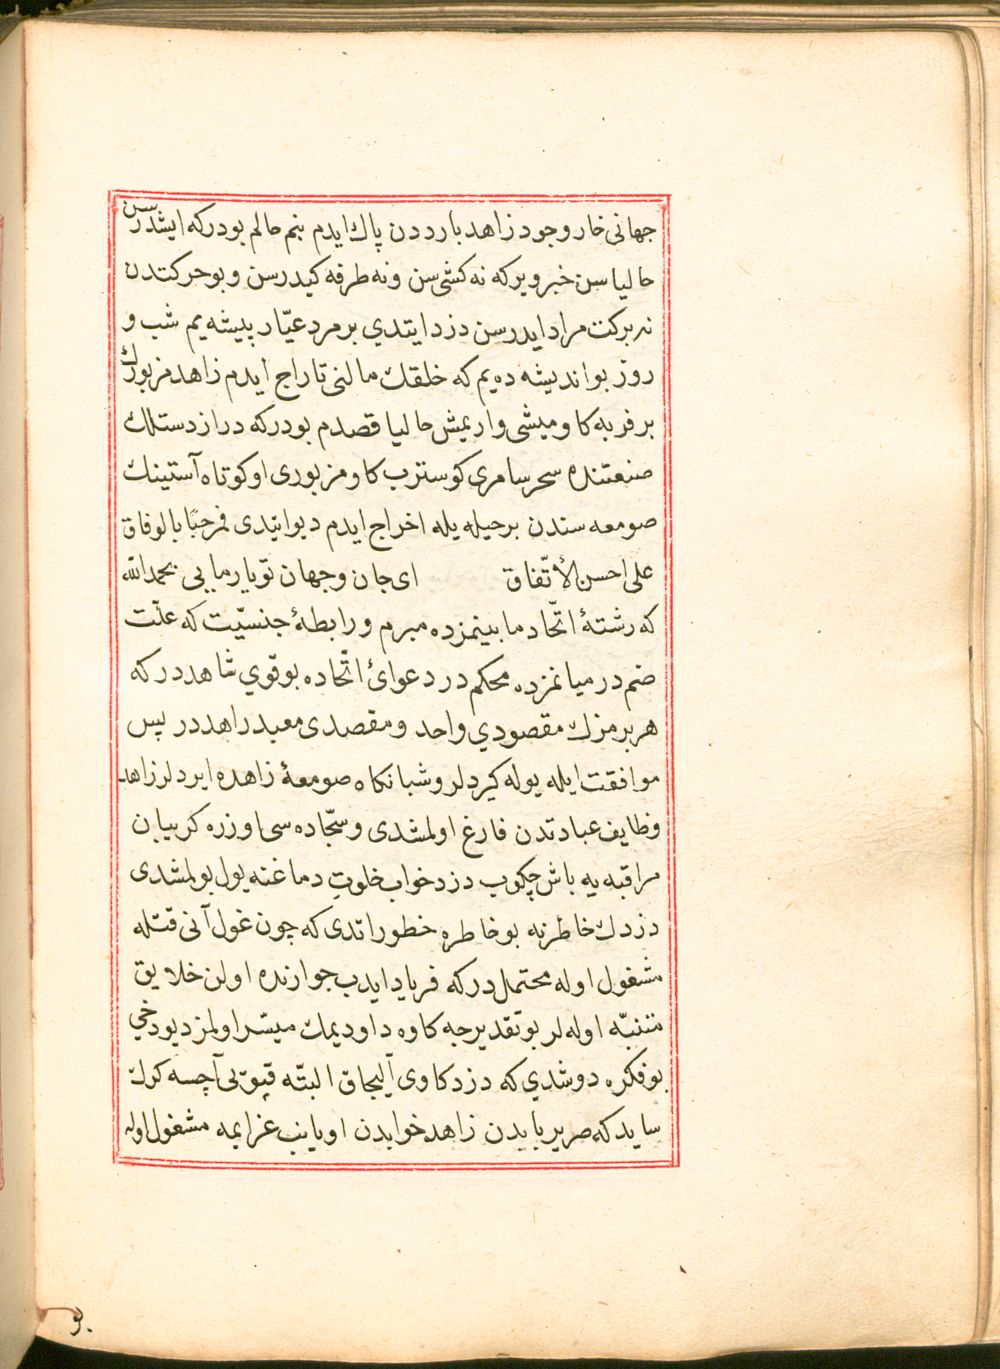 جهانی خار وجود زاهد باردن پاك ایدم بنم حالم بودر که ایشدرسن
حالیا سن خبر ویر که نه کشی سن ونه طرفه کیدرسن و بو حرکتدن
نه برکت مراد ایدرسن دزد ایتدي بر مرد عیّار پیشه یم شب و
روز بو اندیشه ده یم که خلقك مالنی تاراج ایدم زاهد مزبورك
بر فربه کاومیشی وار یمش حالیا قصدم بودر که دراز دستلك
صنعتنده سحر سامری کوسترب کاو مزبوری او کوتاه آستینك
صومعه سندن بر حیله یله اخراج ایدم دیو ایتدی فمرحبًا بالوفاق
علی احسن الأتّفاق ای جان وجهان تو یار مایی بحمد الله
که رشتهٔ اتّحاد مابینمزده مبرم ورابطهٔ جنسیّت که علّت
ضم در میانمزده محکم در دعوائ اتّحاده بو قوي شاهددر که
هر برمزك مقصودي واحد ومقصدی معبد زاهددر پس
موافقت ایله یوله کیردلر وشبانکاه صومعهٔ زاهده ایردلر زاهد
وظایف عبادتدن فارغ اولمشدی وسجّاده سی اوزره کریبان
مراقبه یه باش چکوب دزد خواب خلوت دماغنه یول بولمشدی
دزدك خاطرنه بو خاطره خطور اتدی که چون غول آنی قتله
مشغول اوله محتمل در که فریاد ایدب جوارنده اولن خلایق
متنبّه اوله لر بو تقدیرجه کاوه داودیمك میسّر اولمز دیو دخي
بو فکره دوشدي که دزد کاوی آلیجاق البتّه قپویی آچسه کرك
شاید که صریر بابدن زاهد خوابدن اویانب غرایمه مشغول اوله
بو